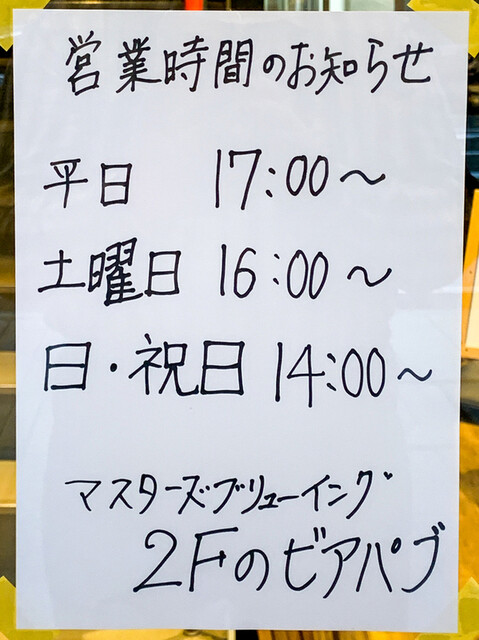 営業時間のお知らせ
平日 17:00～
土曜日 16:00～
日・祝日 14:00～
マスターズブリューイング
2Fのビアパブ